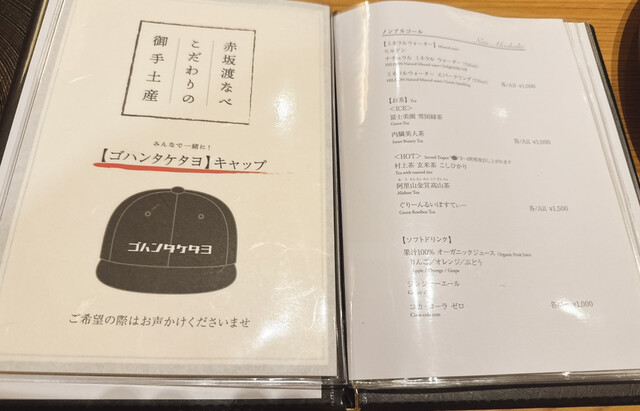 赤坂渡なべ
こだわりの
御手土産
みんなで一緒に!
【ゴハンタケタヨ】キャップ
ゴハンタケタヨ
ご希望の際はお声かけくださいませ
ノンアルコール
Non-Alcoholic
【ミネラルウォーター】
ヒルデン
ナチュラル ミネラル ウォーター
ミネラルウォーター スパークリング
各/A.S
【お茶】Tea
<ICE>
富士美園 雪国緑茶
Green Tea
内臓美人茶
Inner Beauty Tea
各/A.S ¥1,000
<HOT>
村上茶 玄米茶 こしひかり
Tea with roasted rice
阿里山金宣高山茶
Alishan Tea
ぐりーんるいぼすてぃー
Green Rooibos Tea
各/A.S ¥1,500
【ソフトドリンク】
果汁100% オーガニックジュース Organic Fruit Juice
りんご/オレンジ/ぶどう
Apple / Orange / Grape
ジンジャーエール
コカ・コーラ ゼロ
Coca-cola zero
¥1,000